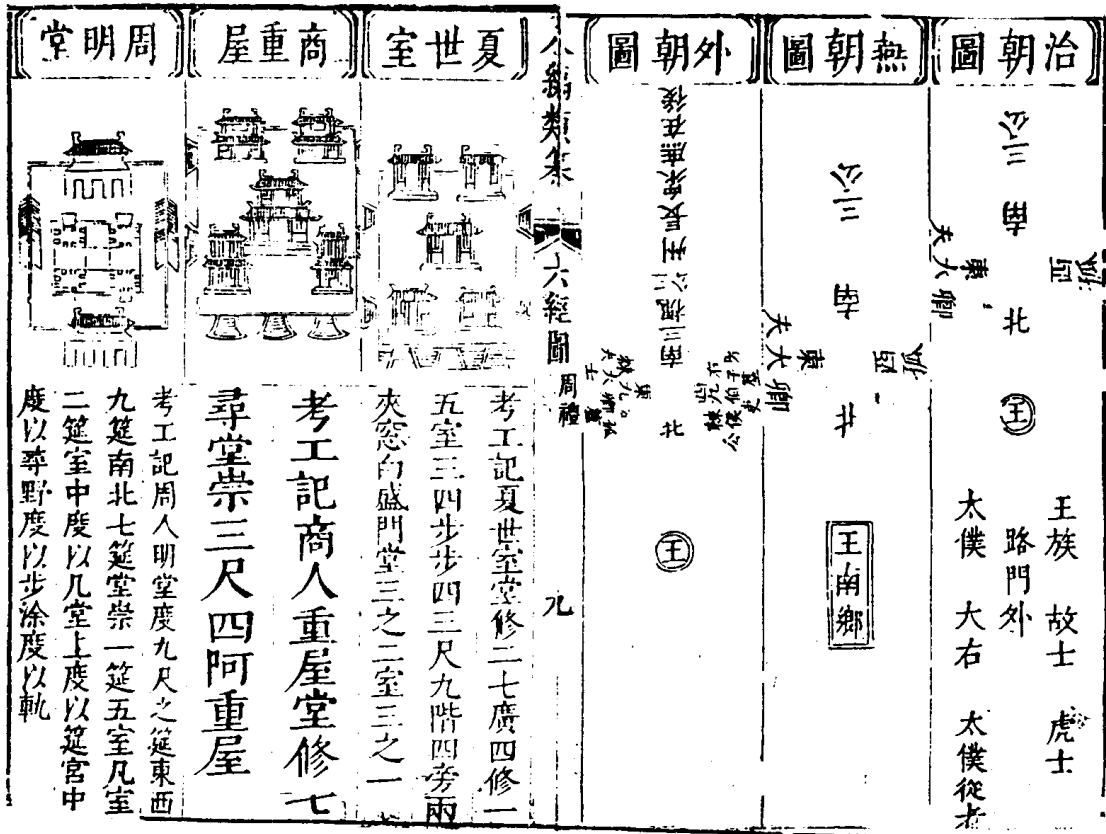 治朝圖
三公
南
東
卿大夫
西
孤
北
王
王族 故士 虎士
路門外
太僕 大右 太僕從者
燕朝圖
三公
南
東
卿大夫
西
孤
北
王南鄉
外朝圖
南三槐三公州長衆庶在後
北
王
八編類纂
六經圖
周禮
九
夏世室
考工記夏世室堂修二七廣四修一
五室三四步步四三尺九階四旁兩
夾窓白盛門堂三之二室三之一
商重屋
考工記商人重屋堂修七
尋堂崇三尺四阿重屋
周明堂
考工記周人明堂度九尺之筵東西
九筵南北七筵堂崇一筵五室凡室
二筵室中度以几堂上度以筵宮中
度以尋野度以步涂度以軌